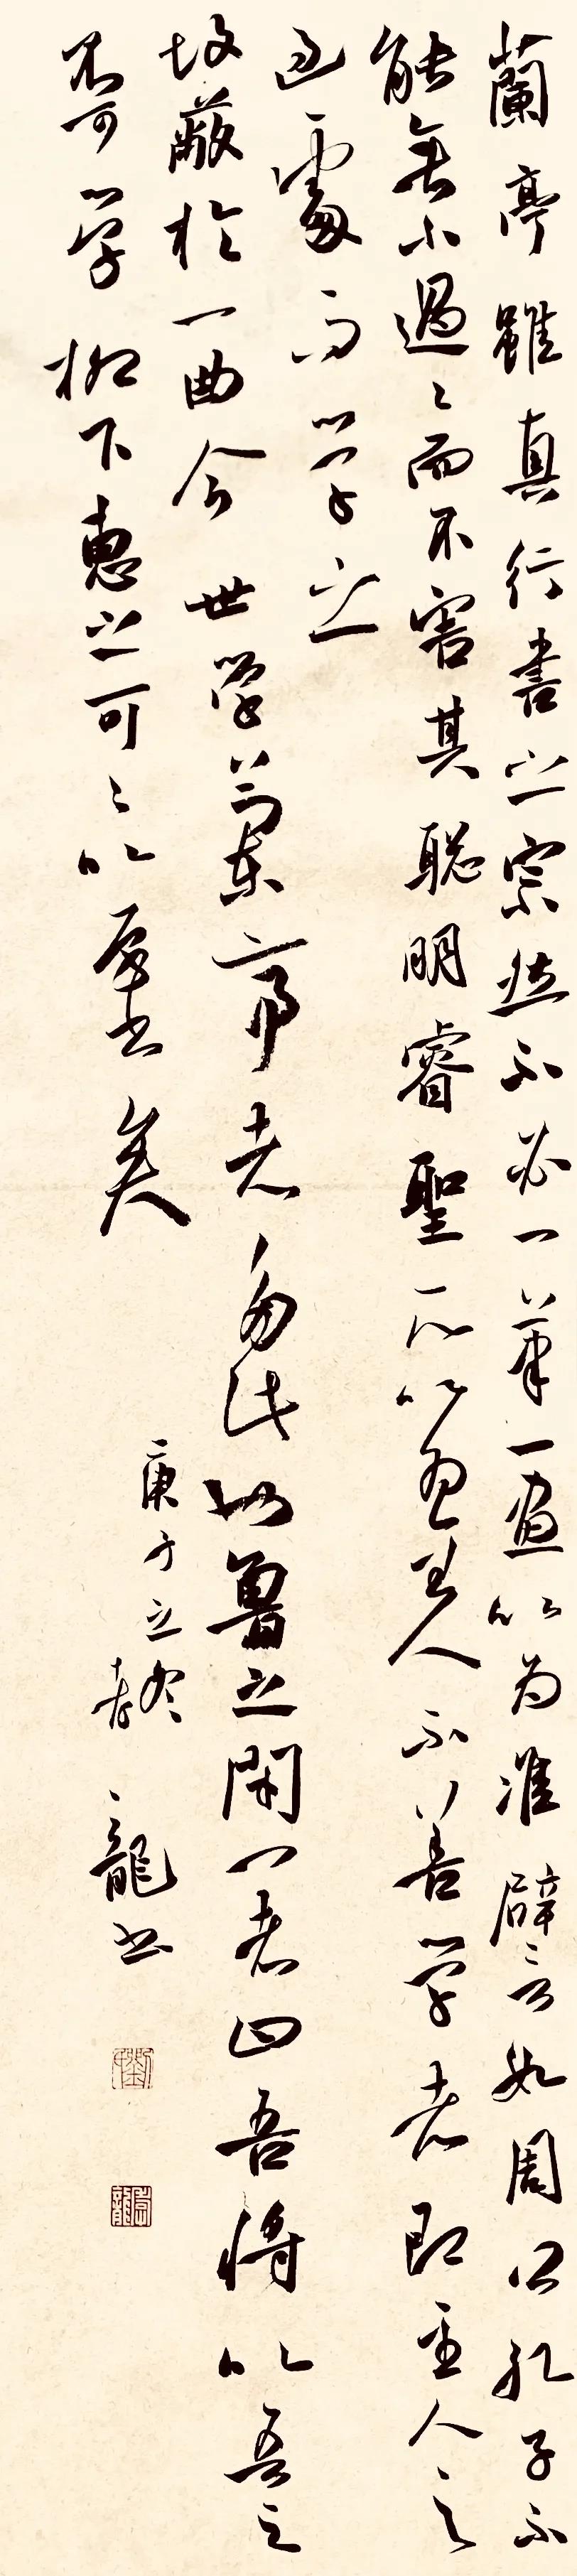 蘭亭雖真行書之宗然不必一筆一畫以为准譬如周公孔子不
能無小過〻而不害其聰明睿聖所以為聖人不善學者即聖人之
過處而學之
故蔽於一曲今世學蘭亭者多此也魯之閉門者曰吾將以吾之
不可學柳下惠之可〻以學書矣
庚子立
龍书
李龍